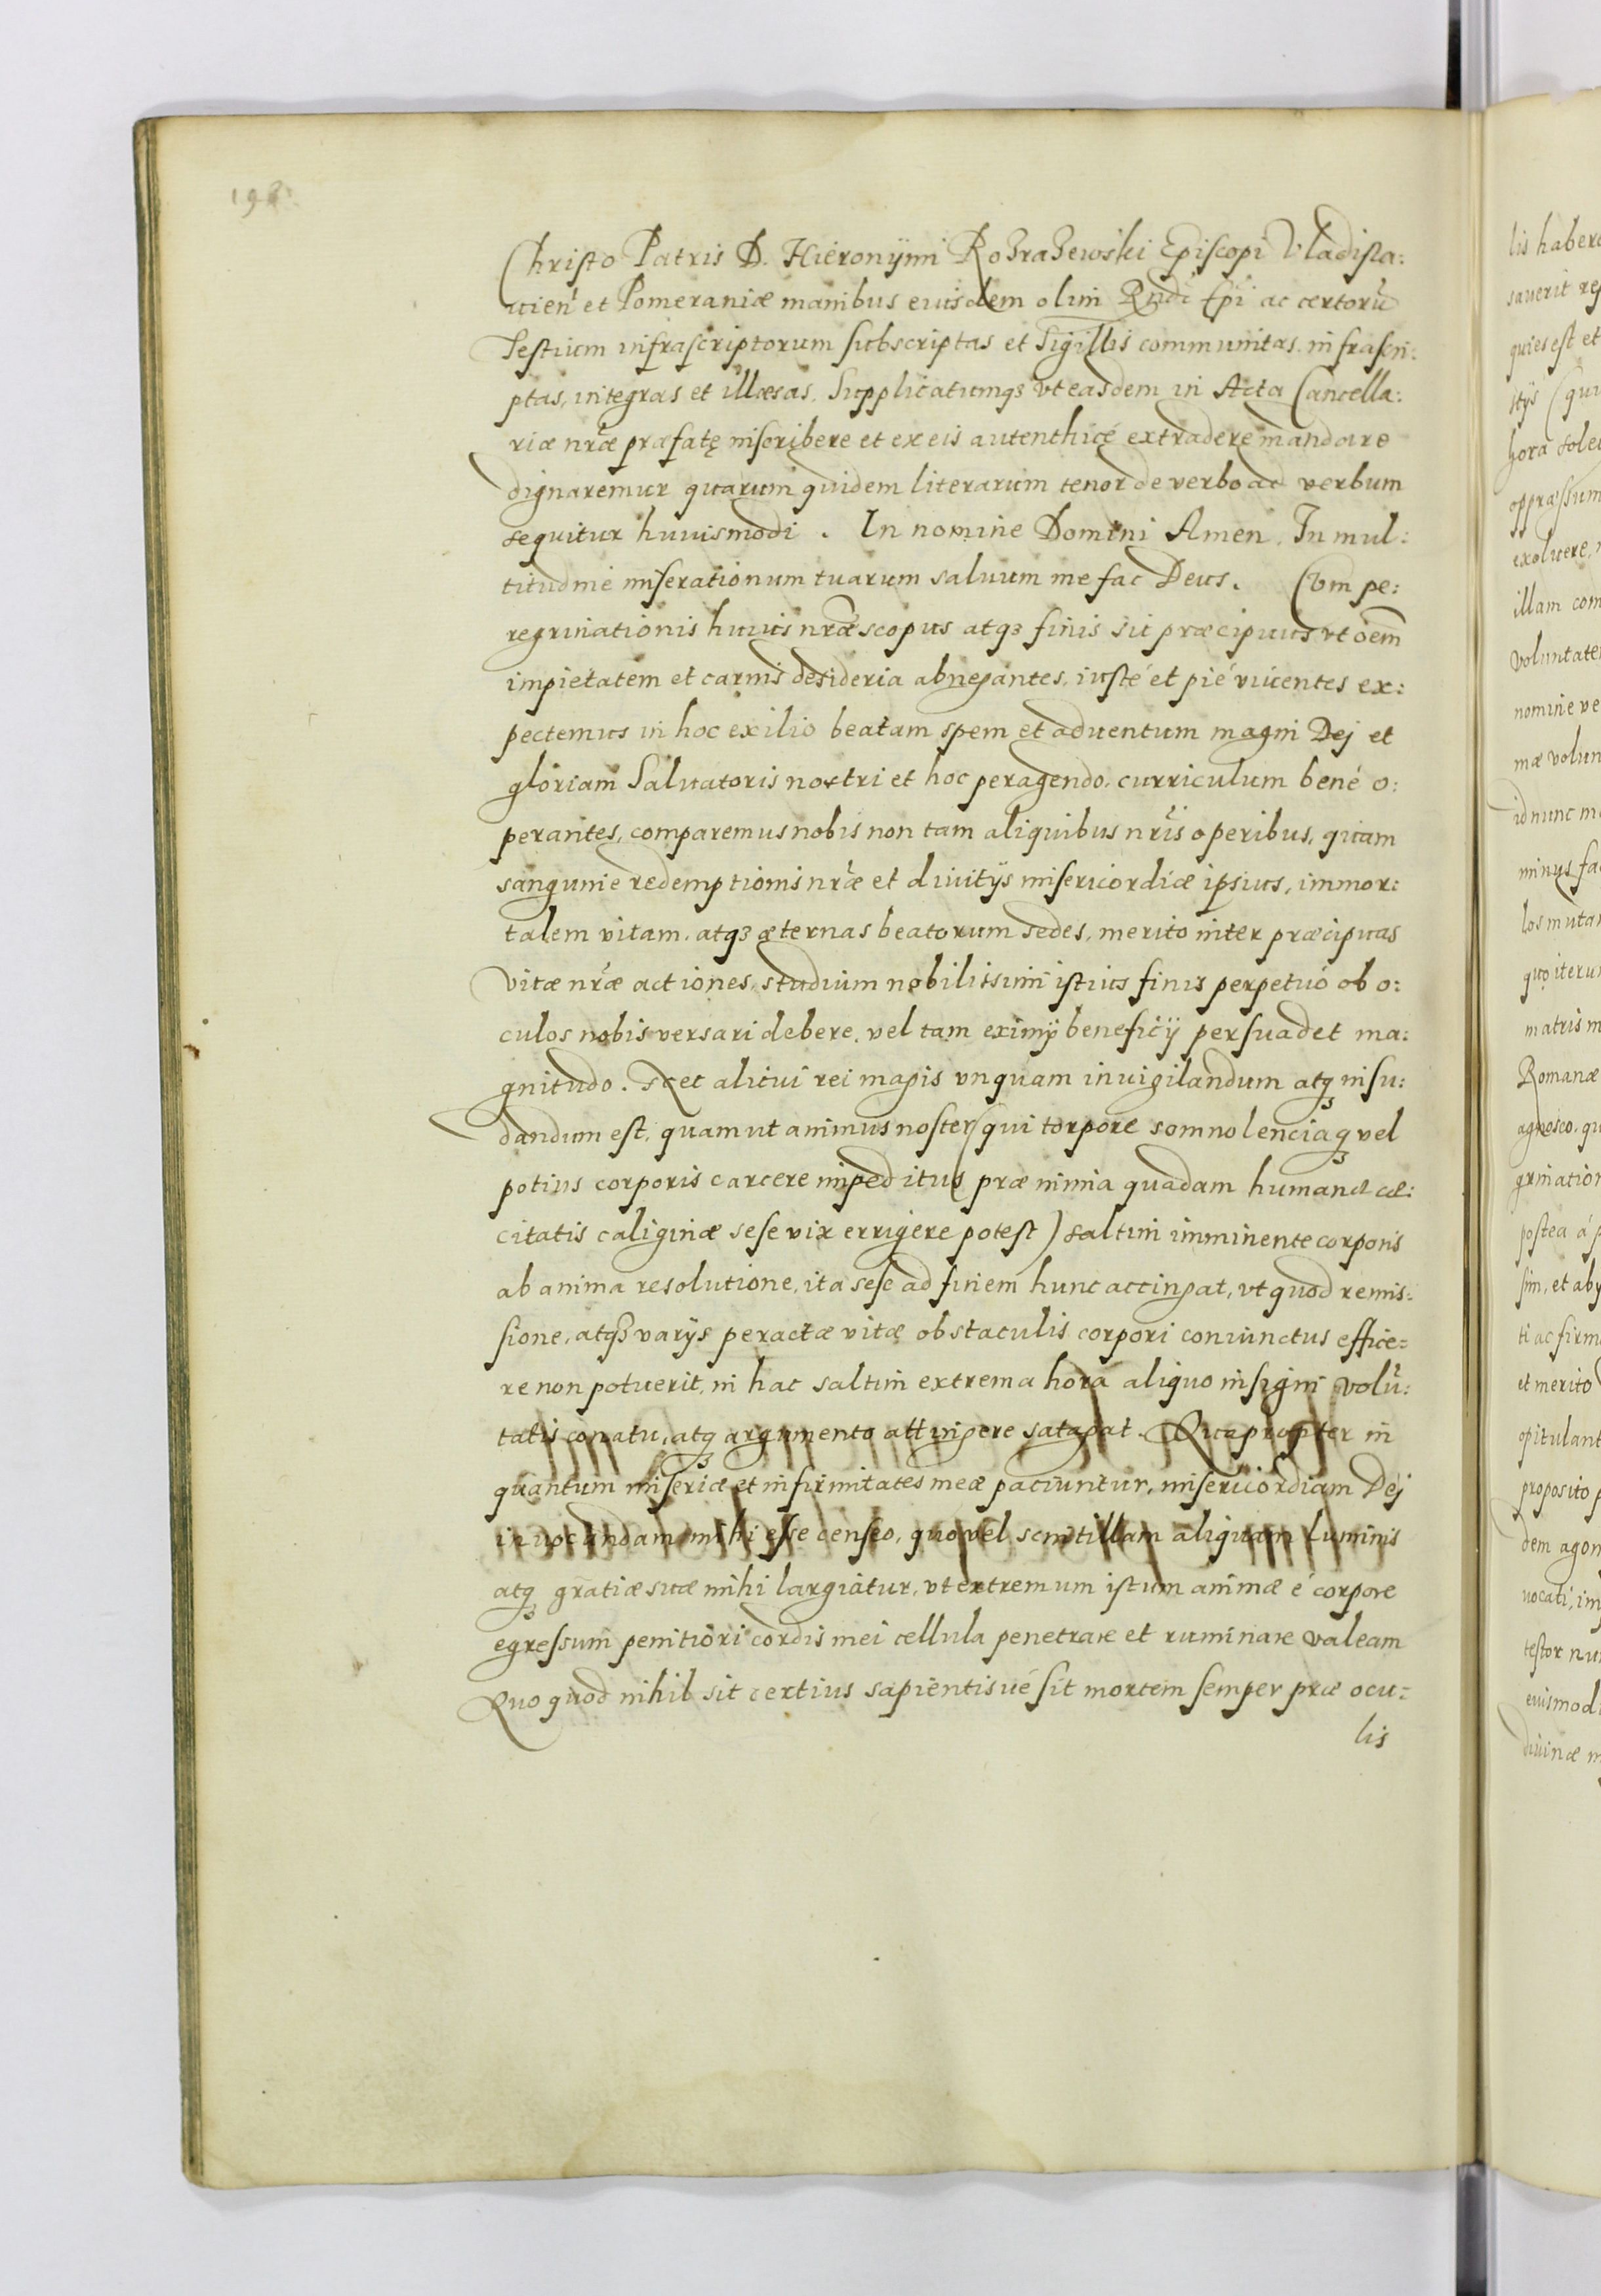 Christo Patris D. Hieronÿmi Rozrazewski Episcopi Vladisla:
uien et Pomeraniæ manibus eiusdem olim Rndi Epi ac certorũ
Testium infrascriptorum subscriptas et Sigillis communitas, infrascri:
ptas, integras et illæsas. Supplicatumqȝ vt easdem in Acta Cancella:
riæ nræ præfatę inscribere et ex eis autenthicé extradere mandare
dignaremur quarum quidem literarum tenor de verbo ad verbum
sequitur huiusmodi. In nomine Domini Amen. In mul:
titudine miserationum tuarum saluum me fac Deus. Cum pe:
regrinationis huius nræ scopus atqȝ finis sit præcipuus vt oem
impietatem et carnis desideria abnegantes, iusté et pié viuentes ex:
pectemus in hoc exilio beatam spem et aduentum magni Dej et
gloriam Saluatoris nostri et hoc peragendo curriculum bené o:
perantes, comparemus nobis non tam aliquibus nris operibus, quam
sanguine redemptionis nræ et diuitÿs misericordiæ ipsius, immor:
talem vitam, atqȝ æternas beatorum sedes, merito inter præcipuas
vitæ nræ actiones, studium nobilissimi istius finis perpetuó ob o:
culos nobis versari debere, vel tam eximÿ beneficÿ persuadet ma:
gnitudo. Nec alicui rei magis vnquam inuigilandum atqȝ insu:
dandum est, quam ut animus noster (qui torpore somnolenciaqȝ vel
potius corporis carcere impeditus præ nimia quadam humanæ cæ:
citatis caliginæ sese vix errigere potest) saltim imminente corporis
ab anima resolutione, ita sese ad finem hunc accingat, vt quod remis:
sione, atqȝ varÿs peractæ vitæ obstaculis corpori coniunctus effice:
re non potuerit, in hac saltim extrema hora aliquo insigni volũ:
tatis conatu, atqȝ argumento attingere satagat. Quapropter in
quantum miseriæ et infirmitates meæ paciuntur, misericordiam Dej
inuocandam mihi esse censeo, quo vel scintillam aliquam luminis
atqȝ gratiæ suæ mihi largiatur, vt extremum istum animæ é corpore
egressum penitiori cordis mei cellula penetrare et ruminare valeam
Quo quod nihil sit certius sapientisué sit mortem semper præ ocu:
lis